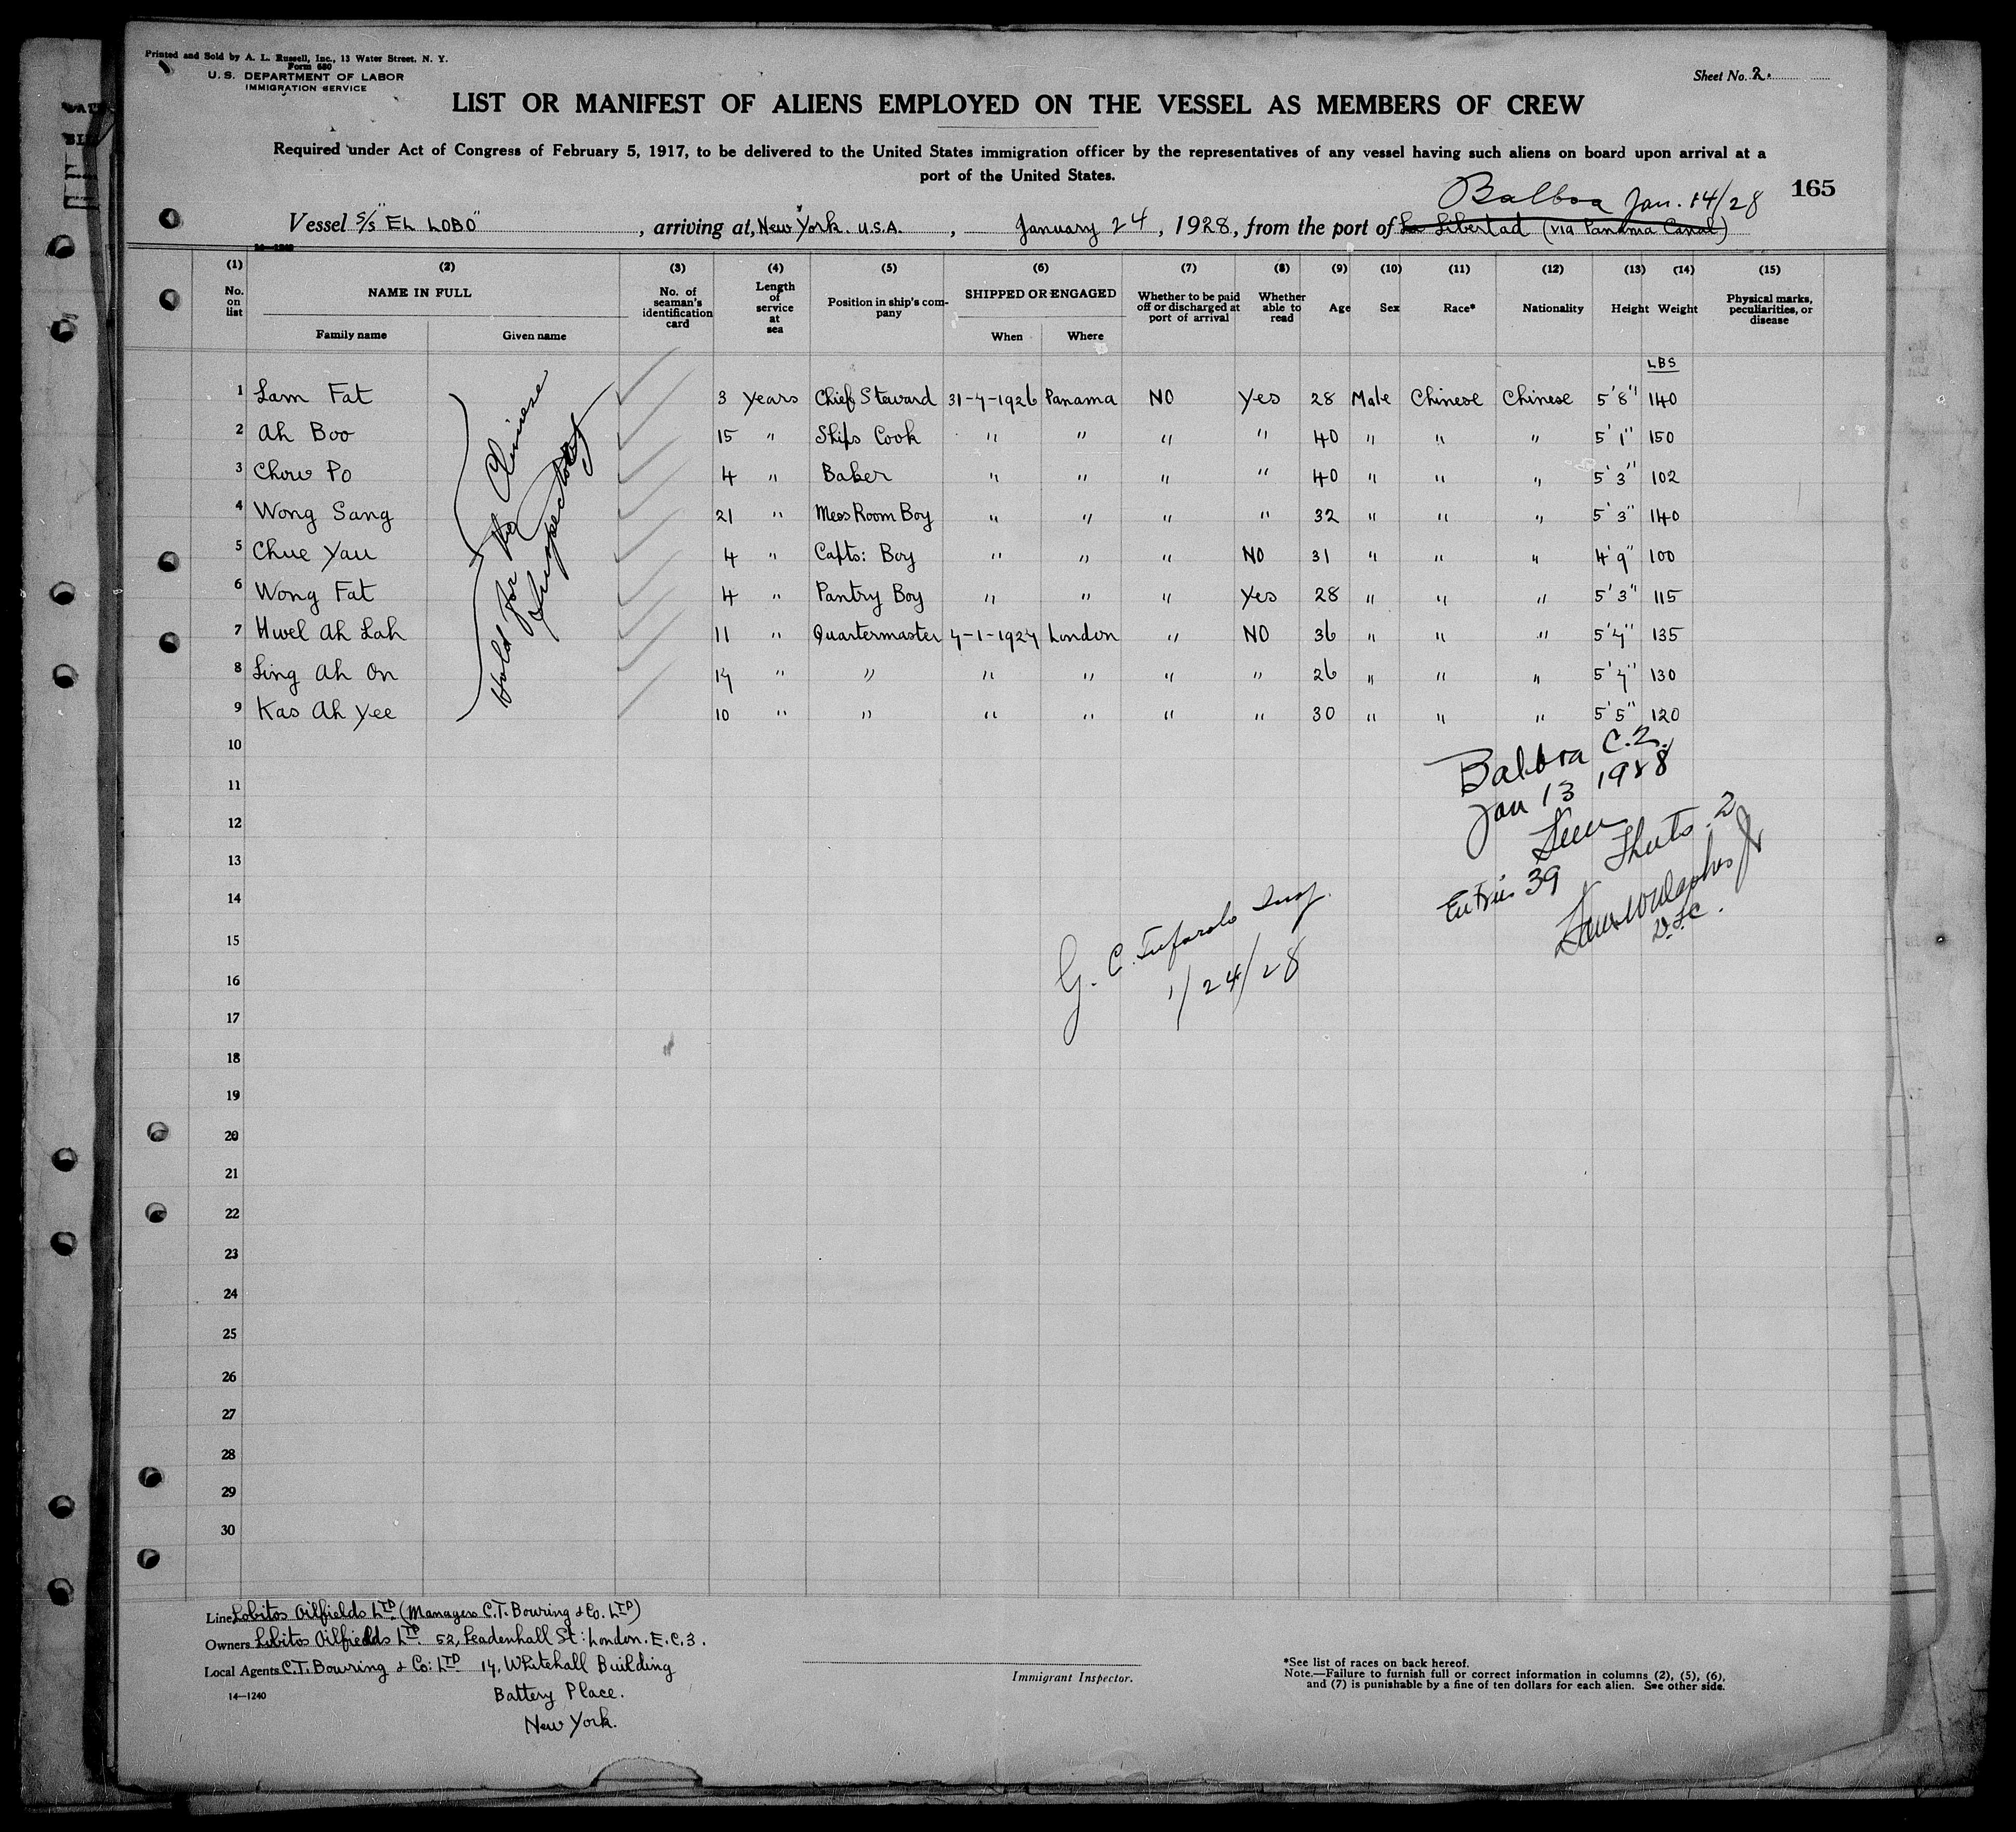 Printed and Sold by A. L. Russell, Inc., 13 Water Street, N. Y.
Form 680
U. S. DEPARTMENT OF LABOR
IMMIGRATION SERVICE
Sheet No. 2.
LIST OR MANIFEST OF ALIENS EMPLOYED ON THE VESSEL AS MEMBERS OF CREW
Required under Act of Congress of February 5, 1917, to be delivered to the United States immigration officer by the representatives of any vessel having such aliens on board upon arrival at a
port of the United States.
165
Balboa Jan. 14/28
Vessel S/S "EL LOBO", arriving at, New York. U.S.A., January 24, 1928, from the port of La Libertad (via Panama Canal)
14-1240
(1) (2) (3) (4) (5) (6) (7) (8) (9) (10) (11) (12) (13) (14) (15)
No. on list NAME IN FULL Family name Given name No. of seaman's identification card Length of service at sea Position in ship's company SHIPPED OR ENGAGED When Where Whether to be paid off or discharged at port of arrival Whether able to read Age Sex Race* Nationality Height Weight Physical marks, peculiarities, or disease
LBS
1 Lam Fat 3 years Chief Steward 31-7-1926 Panama NO Yes 28 Male Chinese Chinese 5'8" 140
2 Ah Boo 15 " Ships Cook " " " " 40 " " " 5'1" 150
3 Chow Po 4 " Baker " " " " 40 " " " 5'3" 102
4 Wong Sang 21 " Mess Room Boy " " " " 32 " " " 5'3" 140
5 Chue Yau 4 " Capts: Boy " " " NO 31 " " " 4'9" 100
6 Wong Fat 4 " Pantry Boy " " " Yes 28 " " " 5'3" 115
7 Hwel Ah Lah 11 " Quartermaster 7-1-1927 London " NO 36 " " " 5'7" 135
8 Ling Ah On 17 " " " " " " 26 " " " 5'7" 130
9 Kas Ah Yee 10 " " " " " " 30 " " " 5'5" 120
Hold for the Chinese
Inspector
10
11
12
13
14
15
16
17
18
19
20
21
22
23
24
25
26
27
28
29
30
Balboa C.Z.
Jan 13 1928
Seen
Entries 39 Sheets 2
G. C. Tufarolo Insp.
1/24/28
Line Lobitos Oilfields LTD (Managers C.T. Bowring & Co. LTD)
Owners Lobitos Oilfields LTD 52, Leadenhall St: London. E.C.3.
Local Agents C.T. Bowring & Co: LTD 17, Whitehall Building
Battery Place.
New York.
14—1240
Immigrant Inspector.
*See list of races on back hereof.
Note.—Failure to furnish full or correct information in columns (2), (5), (6),
and (7) is punishable by a fine of ten dollars for each alien. See other side.